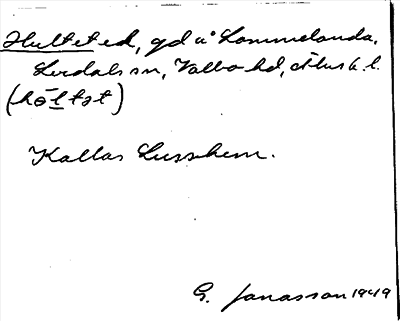 Hultet ed, gd u° Lommelanda,
Lerdals sn, Valbo hd, Älvsb. l.
(hɵ̄ltət)
Kallas Lusshem.
G. Jonasson 1949